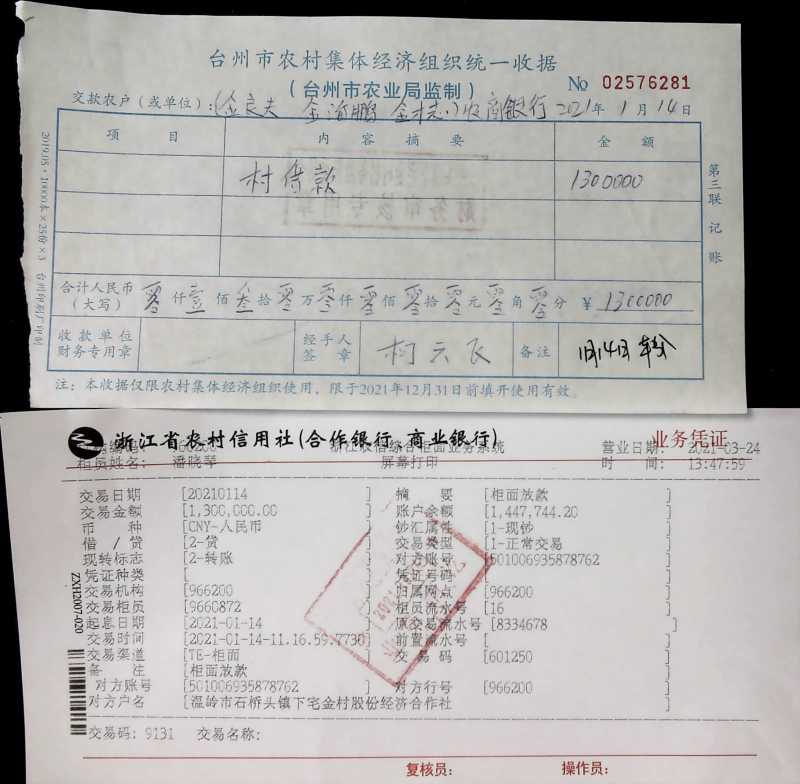 台州市农村集体经济组织统一收据
(台州市农业局监制)
№ 02576281
交款农户(或单位): 农商银行 2021年 1月 14日
项 目 内 容 摘 要 金 额
村贷款 1300000
合计人民币(大写) 零仟壹佰叁拾零万零仟零佰零拾零元零角零分 ¥ 1300000
收款单位财务专用章 经手人签章 柯云飞 备注 1月14日
注:本收据仅限农村集体经济组织使用,限于2021年12月31日前填开使用有效。
第三联 记账
浙江省农村信用社(合作银行 商业银行) 业务凭证
浙江农信综合柜面业务系统 营业日期: 2021-03-24
柜员姓名: 潘晓琴 屏幕打印 时 间: 13:47:59
交易日期 [20210114 ] 摘 要 [柜面放款 ]
交易金额 [1,300,000.00 ] 账户余额 [1,447,744.20 ]
币 种 [CNY-人民币 ] 钞汇属性 [1-现钞 ]
借 / 贷 [2-贷 ] 交易类型 [1-正常交易 ]
现转标志 [2-转账 ] 对方账号 [501006935878762 ]
凭证种类 [ ] 凭证号码 [ ]
交易机构 [966200 ] 归属网点 [966200 ]
交易柜员 [9660872 ] 柜员流水号 [16 ]
起息日期 [2021-01-14 ] 原交易流水号 [8334678 ]
交易时间 [2021-01-14-11.16.59.7730] 前置流水号 [ ]
交易渠道 [TE-柜面 ] 交 易 码 [601250 ]
备 注 [柜面放款 ]
对方账号 [501006935878762 ] 对方行号 [966200 ]
对方户名 [温岭市石桥头镇下宅金村股份经济合作社 ]
交易码: 9131 交易名称:
复核员: 操作员:
ZXH2007-020